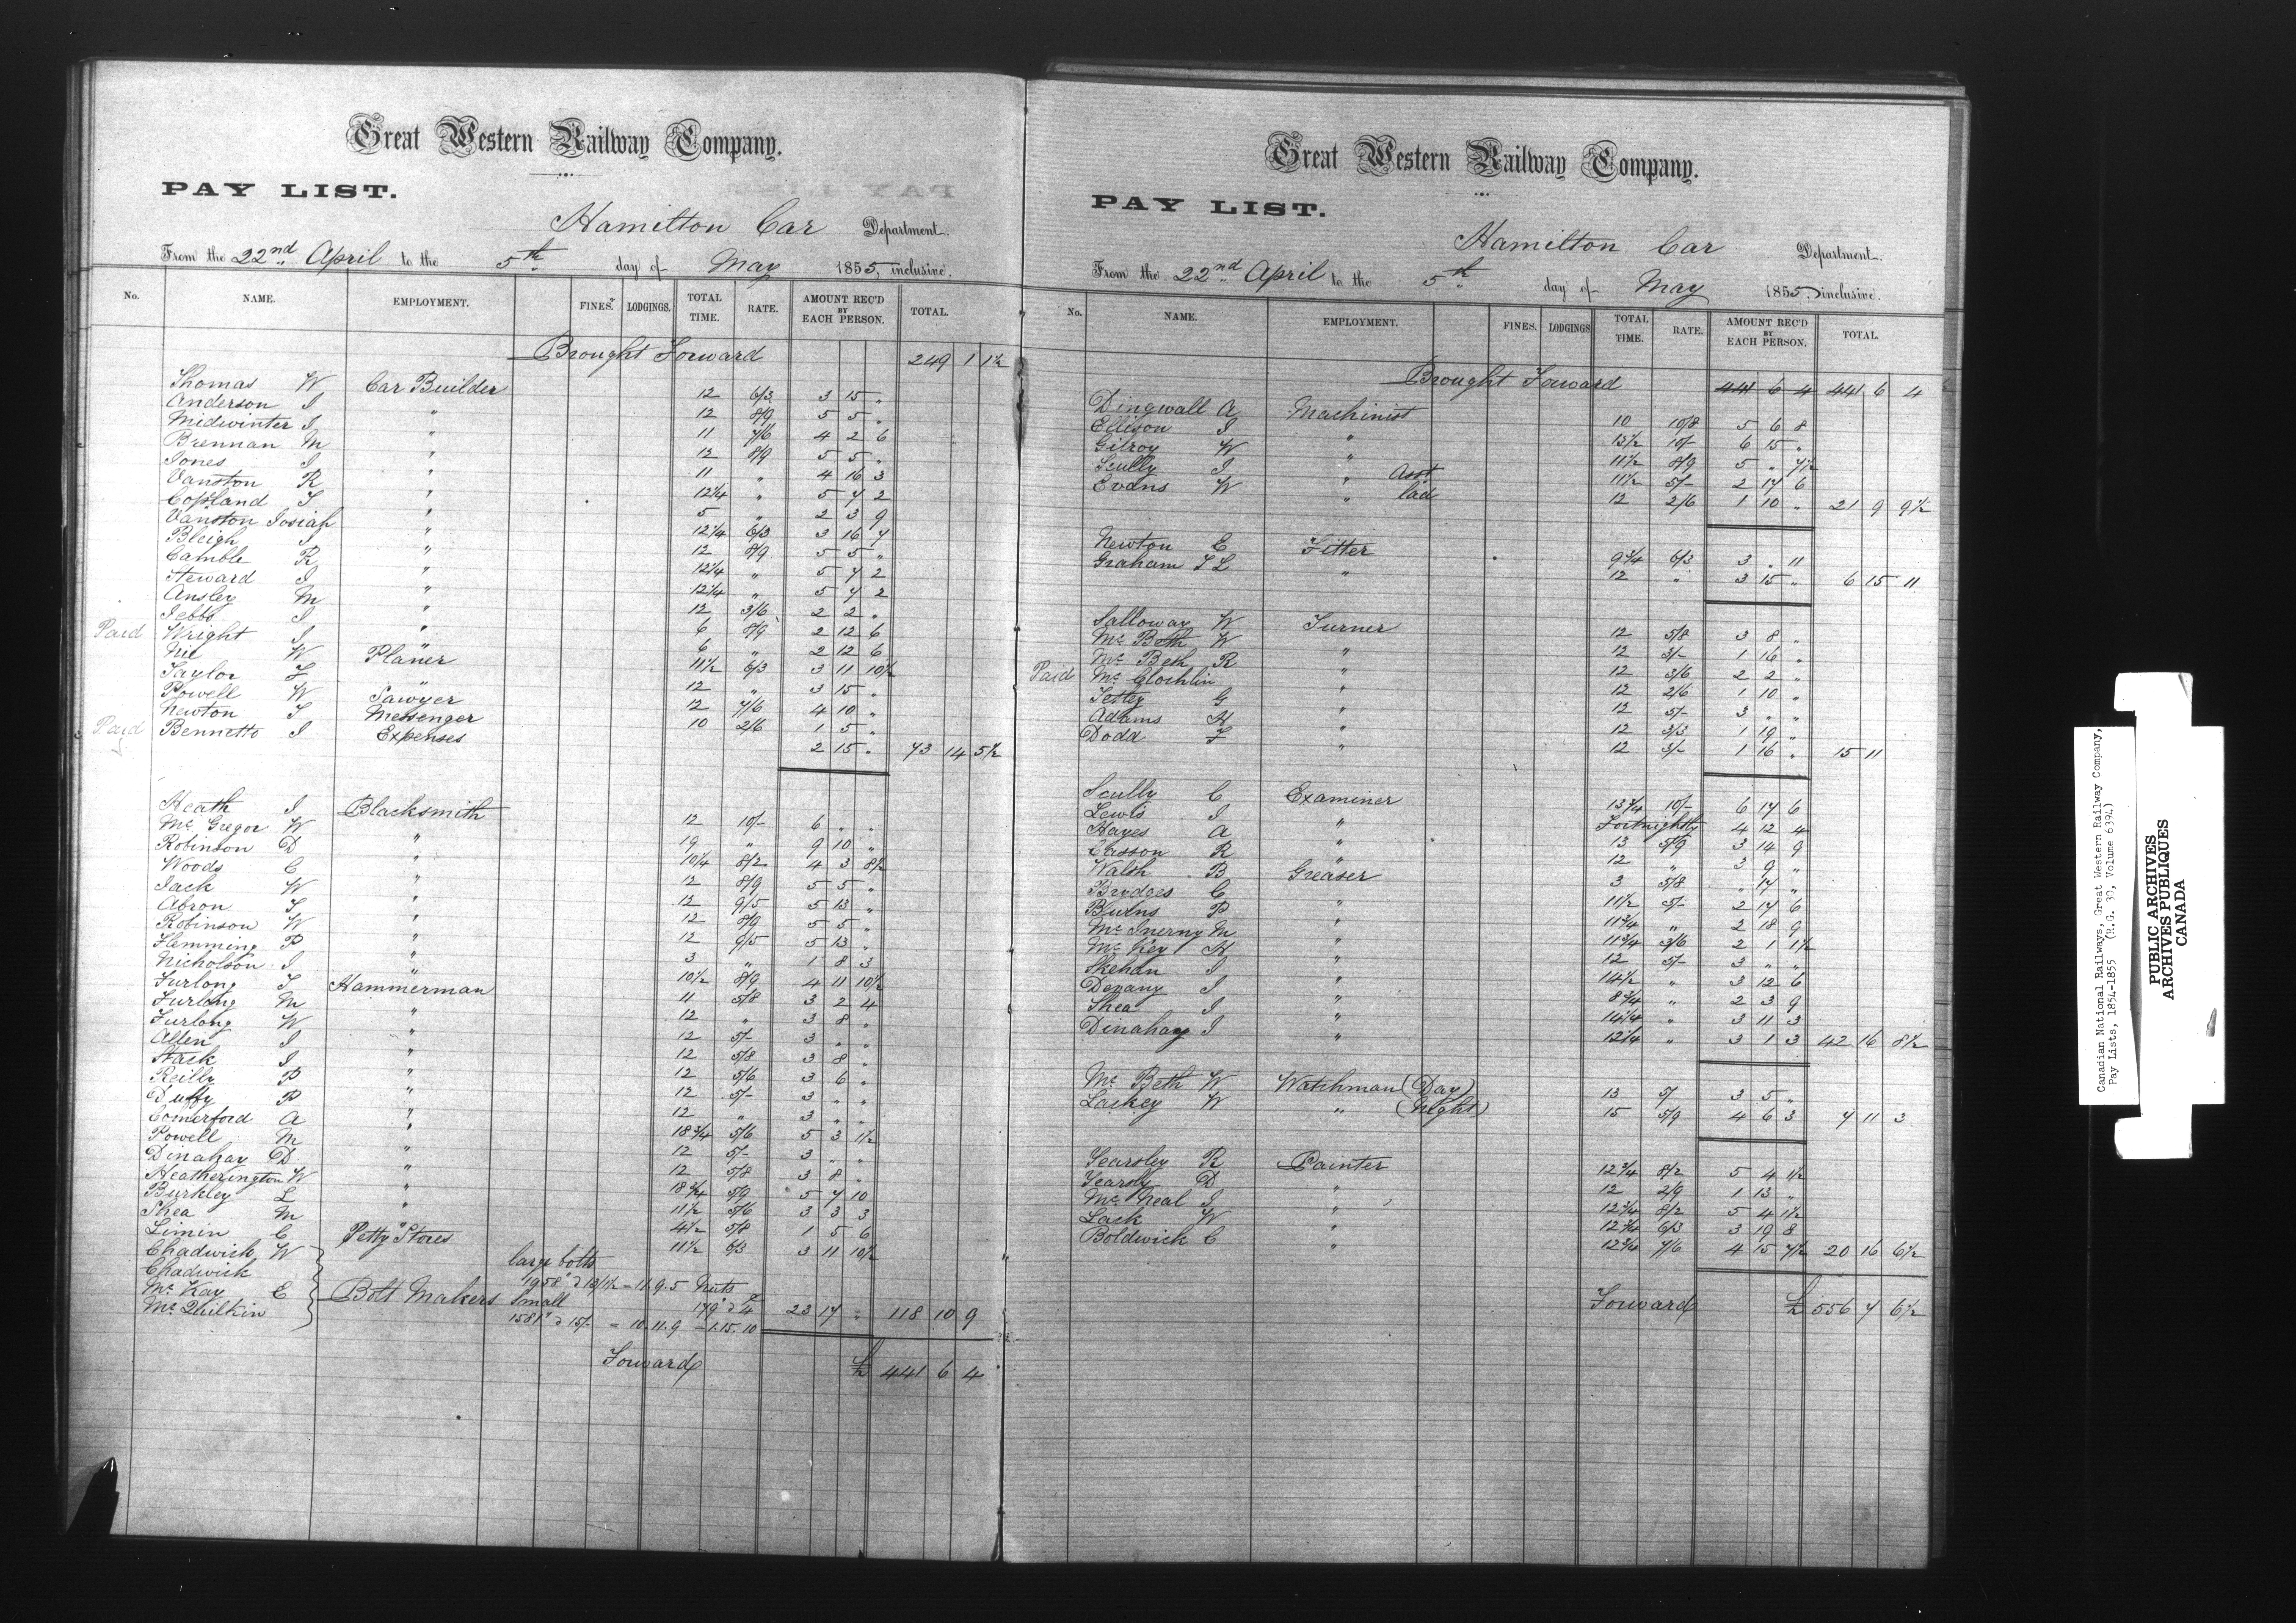 Great Western Railway Company.
PAY LIST.
Hamilton Car Department.
From the 22nd April to the 5th day of May 1855, inclusive.
No. NAME. EMPLOYMENT. FINES. LODGINGS. TOTAL TIME. RATE. AMOUNT REC'D BY EACH PERSON. TOTAL.
Brought Forward 249 1 1½
Thomas W Car Builder 12 6/3 3 15 "
Anderson J " 12 8/9 5 5 "
Midwinter J " 11 7/6 4 2 6
Brennan M " 12 8/9 5 5 "
Jones J " 11 " 4 16 3
Vanston R " 12¼ " 5 7 2
Copland T " 5 " 2 3 9
Vanston Josiah " 12¼ 6/3 3 16 7
Bleigh J " 12 8/9 5 5 "
Camble R " 12¼ " 5 7 2
Steward J " 12¼ " 5 7 2
Ansley M " 12 3/6 2 2 "
Jebbs J " 6 8/9 2 12 6
Paid Wright J " 6 " 2 12 6
W Planer 11½ 6/3 3 11 10½
Taylor L " 12 " 3 15 "
Powell W Sawyer 12 7/6 4 10 "
Newton T Messenger 10 2/6 1 5 "
Paid Bennetto J Expenses 2 15 " 73 14 5½
Heath J Blacksmith 12 10/- 6 " "
Mc Gregor W " 19 " 9 10 "
Robinson D " 10¼ 8/2 4 3 8½
Woods C " 12 8/9 5 5 "
Jack W " 12 9/5 5 13 "
Abron T " 12 8/9 5 5 "
Robinson W " 12 9/5 5 13 "
Flemming P " 3 " 1 8 3
Nicholson J " 10½ 8/9 4 11 10½
Furlong T Hammerman 11 5/8 3 2 4
Furlong M " 12 " 3 8 "
Furlong W " 12 5/- 3 " "
Allen J " 12 5/8 3 8 "
Stack J " 12 5/6 3 6 "
Reilly P " 12 5/- 3 " "
Duffy P " 12 " 3 " "
Comerford A " 18¾ 5/6 5 3 1½
Powell M " 12 5/- 3 " "
Dinahay D " 12 5/8 3 8 "
Heatherington W " 18¾ 5/9 5 7 10
Burkley L " 11½ 5/6 3 3 3
Shea M " 4½ 5/8 1 5 6
Limin C Petty Stores 11½ 6/3 3 11 10½
Chadwick W large bolts
Chadwick 1958" @ 13/1½ - 11.9.5 Nuts
Mc Kay E Bolt Makers Small 179" @ 2/4
Mc Quilkin 1581" @ 15/- = 10.11.9 - 1.15.10 23 17 " 118 10 9
Forward £ 441 6 4
Great Western Railway Company.
PAY LIST.
Hamilton Car Department.
From the 22nd April to the 5th day of May 1855, inclusive.
No. NAME. EMPLOYMENT. FINES. LODGINGS TOTAL TIME. RATE. AMOUNT REC'D BY EACH PERSON. TOTAL.
Brought Forward 441 6 4 441 6 4
Dingwall A Machinist 10 10/8 5 6 8
Ellison J " 13½ 10/- 6 15 "
Gilroy W " 11½ 8/9 5 " 7½
Scully J " Asst 11½ 5/- 2 17 6
Evans W " lad 12 2/6 1 10 " 21 9 9½
Newton E Fitter 9¾ 6/3 3 " 11
Graham T L " 12 " 3 15 " 6 15 11
Salloway W Turner 12 5/8 3 8 "
Mc Beth W " 12 3/- 1 16 "
Mc Beth R " 12 3/6 2 2 "
Paid Mc Glochlin " 12 2/6 1 10 "
Tetley G " 12 5/- 3 " "
Adams H " 12 3/3 1 19 "
Dodd F " 12 3/- 1 16 " 15 11
Scully C Examiner 13¾ 10/- 6 17 6
Lewis J " Fortnightly 4 12 4
Hayes A " 13 5/9 3 14 9
Casson R " 12 " 3 9 "
Walsh B Greaser 3 5/8 " 17 "
Brydges C " 11½ 5/- 2 17 6
Burns P " 11¾ " 2 18 9
Mc Inerny M " 11¾ 3/6 2 1 1½
Mc Key H " 12 5/- 3 " "
Skehan J " 14½ " 3 12 6
Devany J " 8¾ " 2 3 9
Shea J " 14¼ " 3 11 3
Dinahay J " 12¼ " 3 1 3 42 16 8½
Mc Beth W Watchman (Day) 13 5/ 3 5 "
Lackey W " (Night) 15 5/9 4 6 3 7 11 3
Yearsley R Painter 12¾ 8/2 5 4 1½
Yearsly D " 12 2/9 1 13 "
Mc Neal J " 12¾ 8/2 5 4 1½
Lack W " 12¾ 6/3 3 19 8
Boldwick C " 12¾ 7/6 4 15 7½ 20 16 6½
Forward £ 556 7 6½
Canadian National Railways, Great Western Railway Company,
Pay Lists, 1854-1855 (R.G. 30, Volume 6394)
PUBLIC ARCHIVES
ARCHIVES PUBLIQUES
CANADA